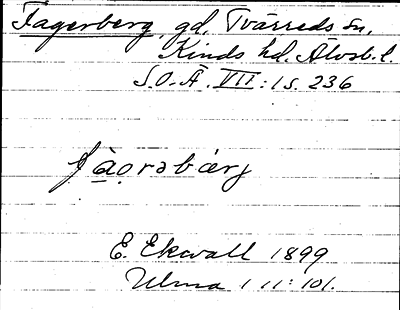 Fagerberg, gd. Tvärreds sn.
Kinds hd. Älvsb. l.
S.O.Ä. VII:1 s. 236
fàgərbærj
E. Ekwall 1899
Ulma 111:101.